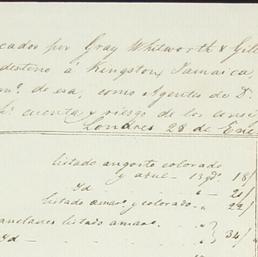 cados por Gray Whilworth & Gil
destino á Kingston, Jamaica,
de esa, como Agentes de D.
cuenta y riesgo de los
Londres 28 de
listado angosto colorado
y azul — 18/
Id — " — 21/
listado amar.º y colorado — " 22/
listado amar.º
Id — " 34/